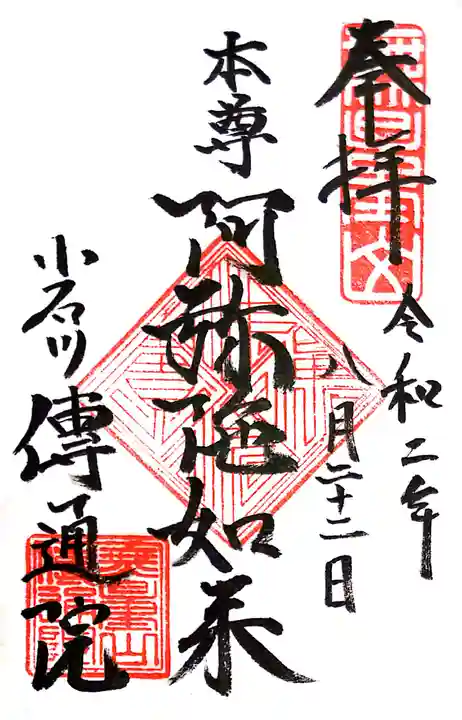 奉拝
令和二年
八月二十二日
本尊
阿弥陀如来
小石川
傳通院